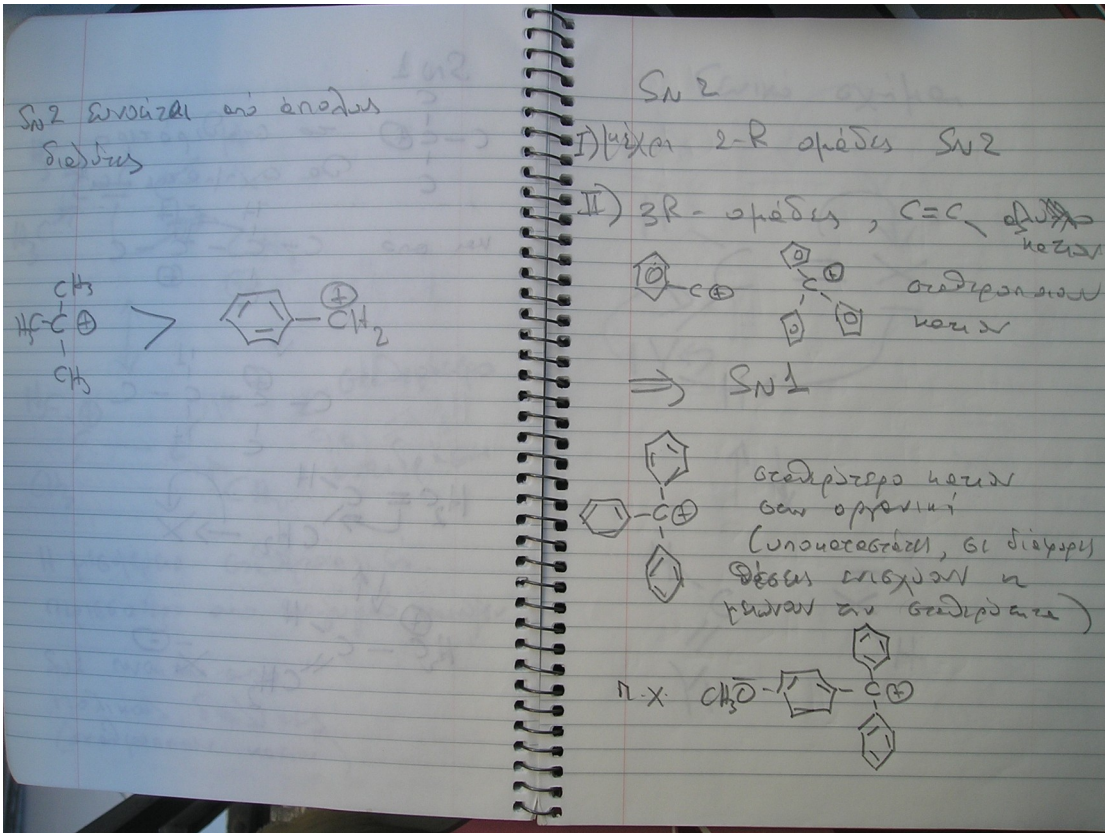 SN2 ευνοείται από άπολους
διαλύτες
CH3
H3C-C ⊕ > CH2 ⊕
CH3
SN2
I) μέχρι 2-R ομάδες SN2
II) 3R-ομάδες, C=C
κατιόν
C⊕ C⊕ σταθεροποιούν
κατιόν
⇒ SN1
σταθερότερο κατιόν
C⊕ στην οργανική
(υποκαταστάτες, σε διάφορες
θέσεις ενισχύουν ή
μειώνουν την σταθερότητα)
π.χ. CH3O- C⊕